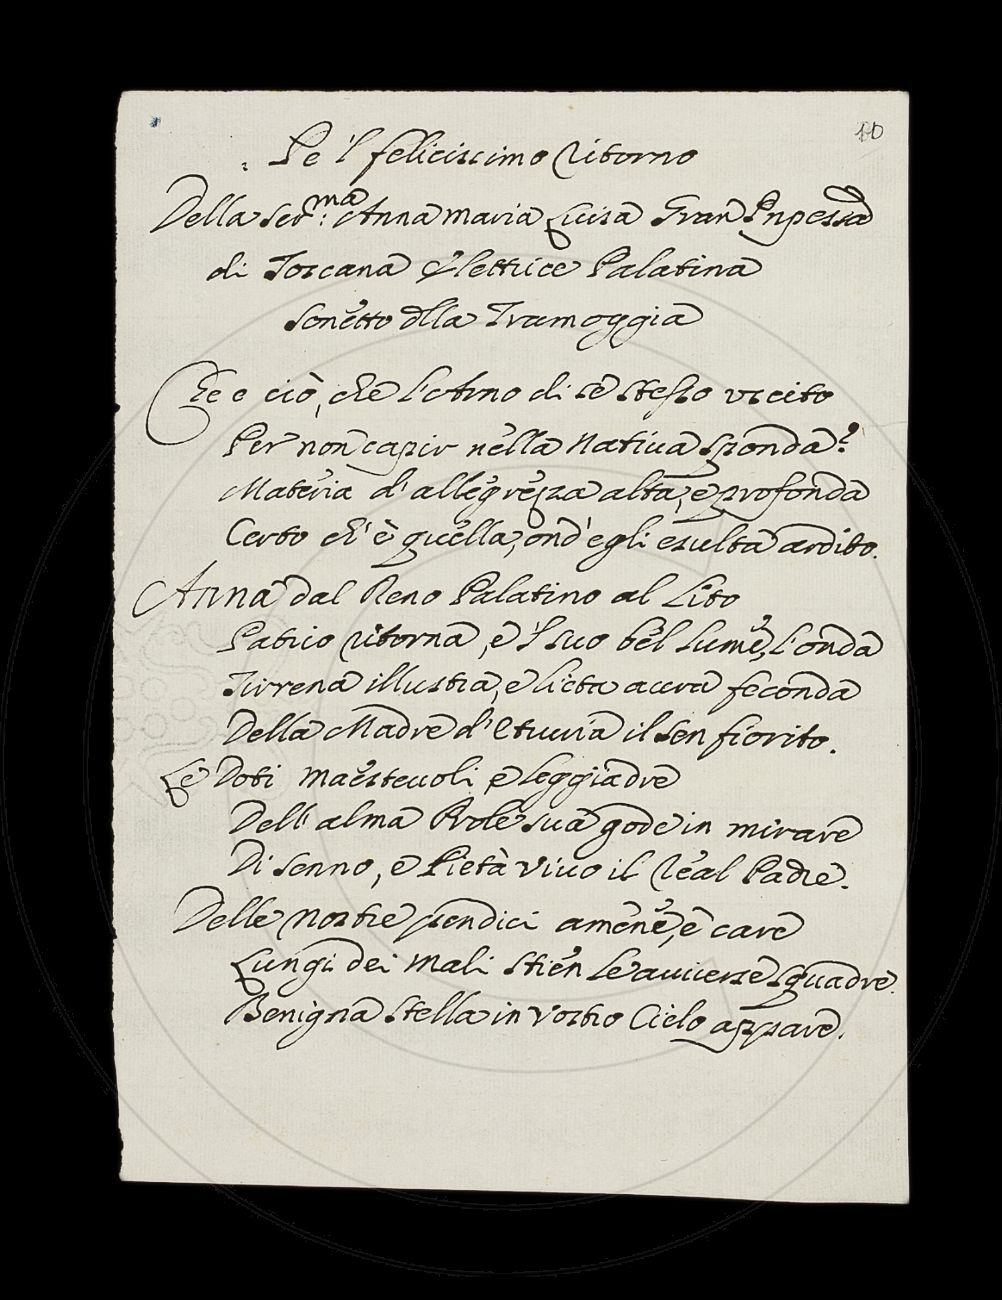 10
Pe 'l felicissimo Ritorno
Della Ser.ma Anna Maria Luisa Gran Pnpessa
di Toscana Elettrice Palatina
Sonetto dlla Tramoggia
Che è ciò, che l'Arno di se stesso uscito
Per non capir nella Nativa sponda?
Materia d'allegrezza alta, e profonda
Certo ch'è quella, ond'egli esulta ardito.
Anna dal Reno Palatino al Lito
Patrio ritorna, e 'l suo bel lume, l'onda
Tirrena illustra, e lieta avrà feconda
Della Madre d'Etruria il sen fiorito.
Le Doti maestevoli e leggiadre
Dell'alma Prole sua gode in mirare
Di senno, e Pietà vivo il Real Padre.
Delle nostre pendici amene, e care
Lungi dei mali stien le avverse squadre.
Benigna stella in vostro Cielo appare.